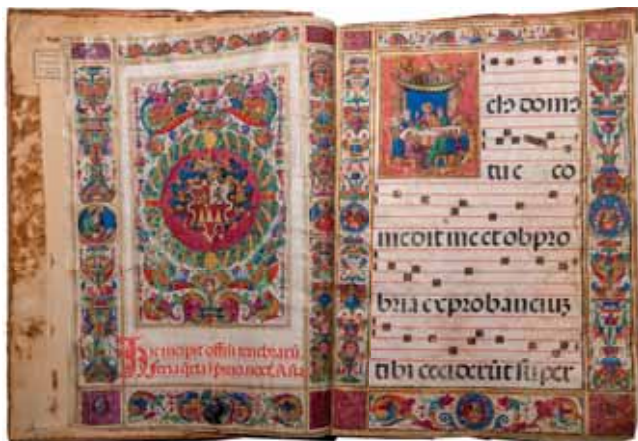 Hic incipit offitiū tenebrarū
feria
elꝰ domꝰ
tu e co
medit me et obpro
bria exprobanciuꝫ
tibi ceciderūt super